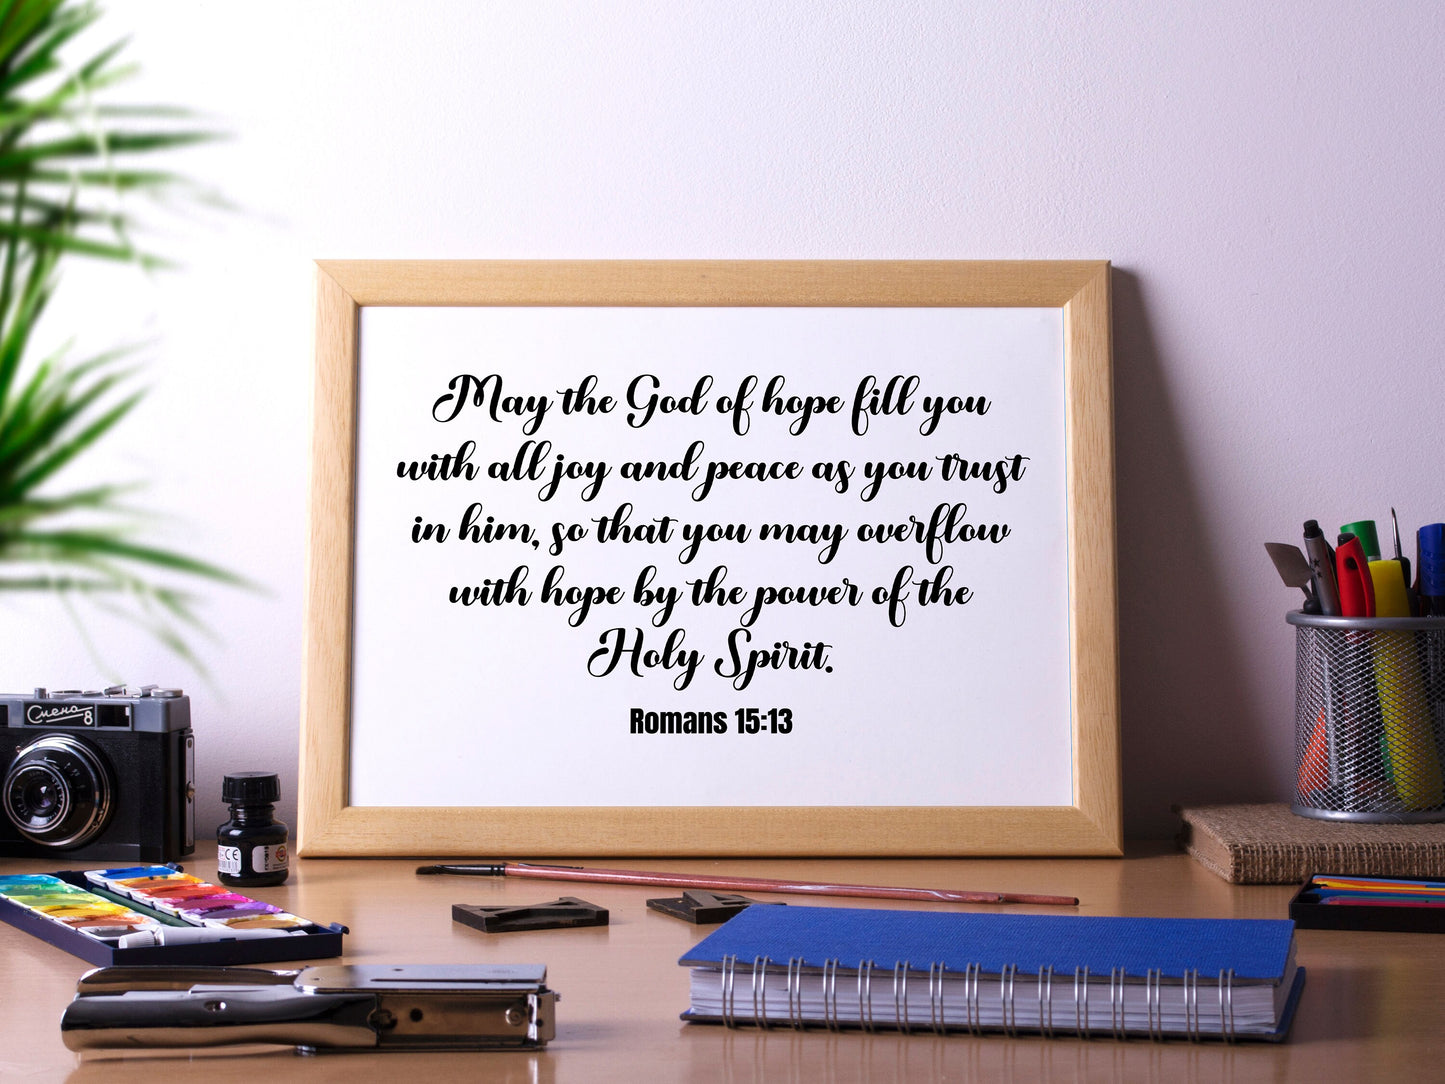 May the God of hope fill you
with all joy and peace as you trust
in him, so that you may overflow
with hope by the power of the
Holy Spirit.
Romans 15:13
Смена 8
CE